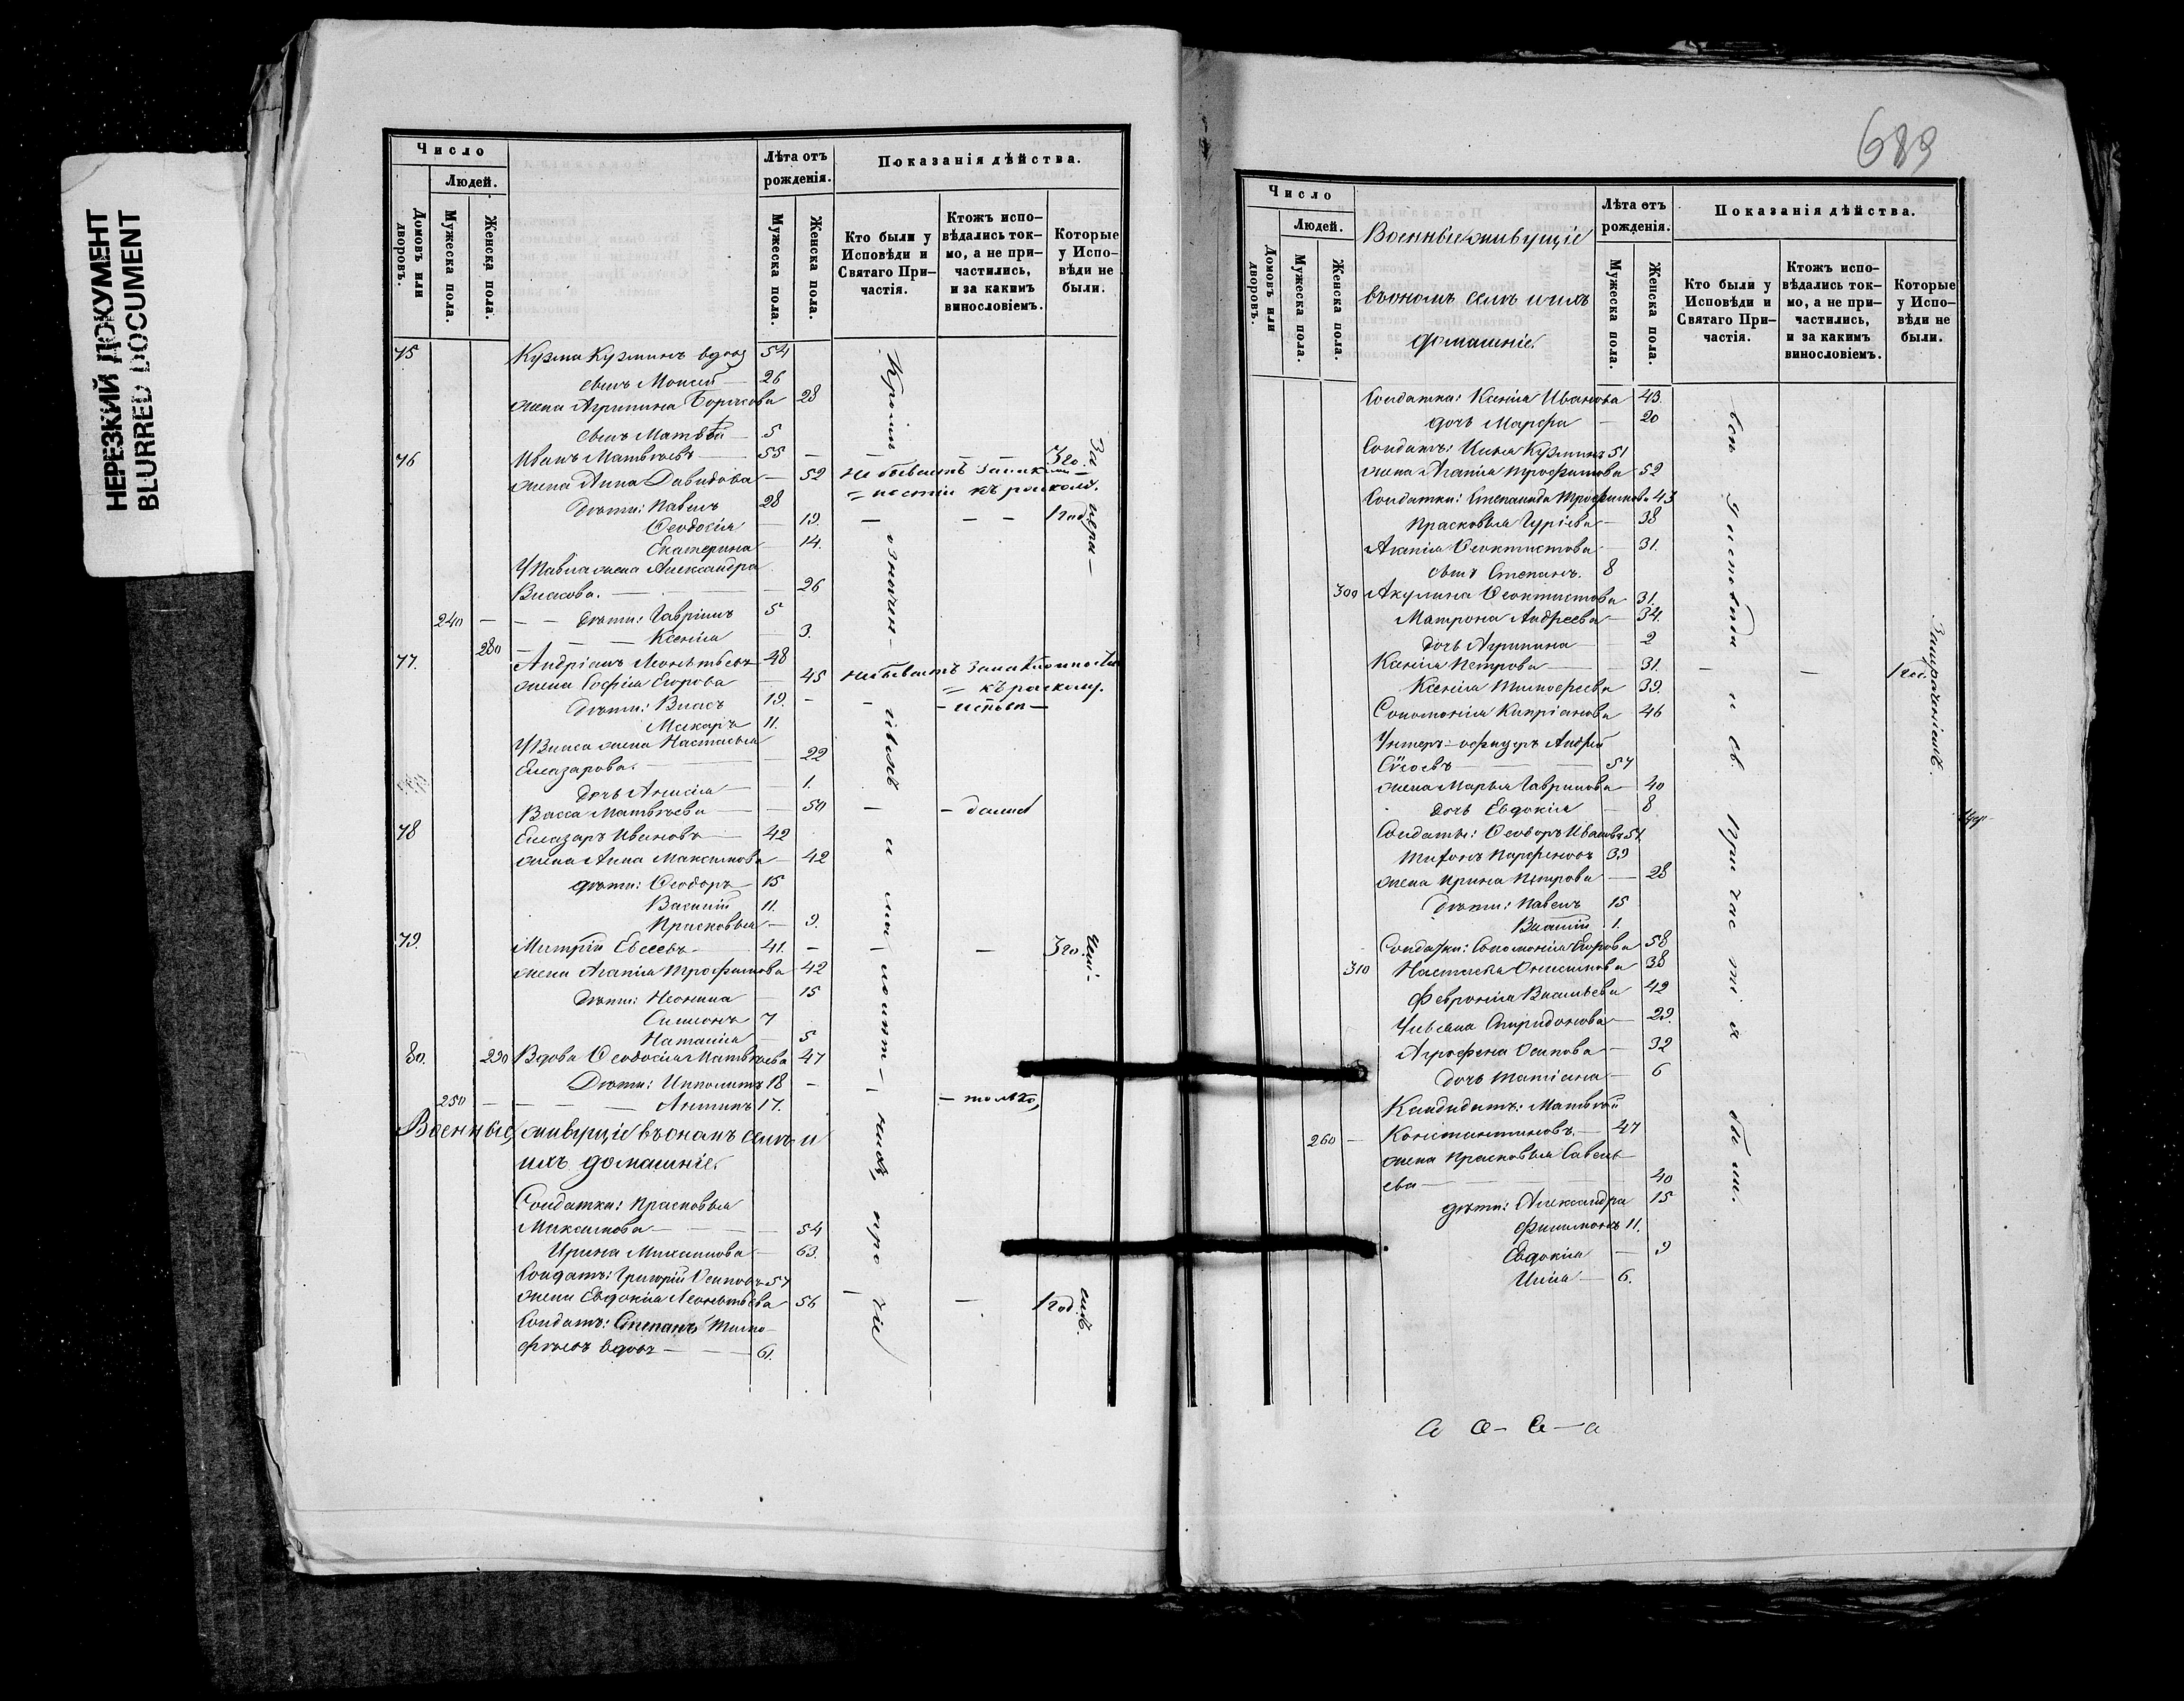 НЕРЕЗКИЙ ДОКУМЕНТ
BLURRED DOCUMENT
Число
Людей.
Домовъ или дворовъ.
Мужеска пола.
Женска пола.
Лѣта отъ рожденія.
Мужеска пола.
Женска пола.
Показанія дѣйства.
Кто были у Исповѣди и Святаго При-частія.
Ктожъ испо-вѣдались ток-мо, а не при-частились, и за какимъ винословіемъ.
Которые у Испо-вѣди не были.
75 Кузма Кузминъ вдов 54
сынъ Моисей — 26
жена Агрипина Борисова 28
сынъ Матвѣй — 5
76 Иванъ Матвѣевъ — 55 — — — 3 го.
жена Анна Давидова — 52 не бываетъ
къ расколу.
Дѣти: Павелъ 28
Ѳеодосія — 19. — — — 1 год
Екатерина — 14.
У Павла жена Александра
Власова. — 26
240 — — — Дѣти: Гавріилъ 5
280 — — — Ксенія — 3.
77. Андріанъ Леонтьевъ 48
жена Софія Егорова — 45 не бываетъ
= къ расколу.
Дѣти: Власъ 19. — —
Макаръ 11.
У Власа жена Настасья
Елазарова. — 22
дочь Анисія — 1.
Васса Матвѣева — 50 —
78 Елазаръ Ивановъ — 42
жена Анна Максимова — 42
дѣти: Ѳеодоръ 15
Василій 11.
Прасковья — 9.
79. Митрій Евсеевъ — 41. — — 3 го.
жена Агапія Трофимова 42
Дѣти: Неонила — 15
Симеонъ 7
Наталія — 5
80. 290 Вдова Ѳеодосія Матвѣева 47
Дѣти: Ипполитъ 18 —
250 — — — Антипъ 17. — только
Военные, живущіе въ оном селѣ и
ихъ домашніе.
Солдатки: Прасковья
Максимова — 54
Ирина Михаилова — 63.
Солдатъ: Григорій Осиповъ 57
жена Евдокія Леонтьева 56 — — 1 год.
Солдатъ: Степанъ Тимо-
фѣевъ вдовъ — 61.
Кромѣ
означен-
а
прочіе
За
689
Число
Людей.
Домовъ или дворовъ.
Мужеска пола.
Женска пола.
Военные живущіе
въ ономъ селѣ и ихъ
домашніе.
Лѣта отъ рожденія.
Мужеска пола.
Женска пола.
Показанія дѣйства.
Кто были у Исповѣди и Святаго При-частія.
Ктожъ испо-вѣдались ток-мо, а не при-частились, и за какимъ винословіемъ.
Которые у Испо-вѣди не были.
Солдатка: Ксенія Иванова 43.
дочь Марфа — 20
Солдатъ: Илья Кузминъ 51
жена Агапія Трофимова 52
Солдатки: Степанида Трофимова 43
Прасковья Гуріева — 38
Агапія Ѳеоктистова — 31.
сынъ Степанъ. 8
300 Акулина Ѳеоктистова 31.
Матрона Андреева — 34.
дочь Агрипина — 2
Ксенія Петрова — 31. — — 1 год.
Ксенія Тимофеева 39.
Соломонія Кипріанова 46
Унтеръ-офицеръ Андрей
57
жена Марья Гаврилова — 40
дочь Евдокія — 8
Солдаты: Ѳеодоръ Ивановъ 57
Тихонъ Парфеновъ 39
жена Ирина Петрова — 28
Дѣти: Павелъ 15
1.
Солдатки: Соломонія Егорова 58
310 Настасья Онисимова 38
Февронія Васильева 42
Ульяна Спиридонова 29.
Агрофена Осипова — 32
дочь Татіана — 6
Кандидатъ: Матвѣй
260 — Константиновъ — 47
жена Прасковья Савель-
ева — 40
дѣти: Александра 15
Филимонъ 11.
Евдокія — 9
Илія — 6.
всѣ у исповѣди и св. причастія были.